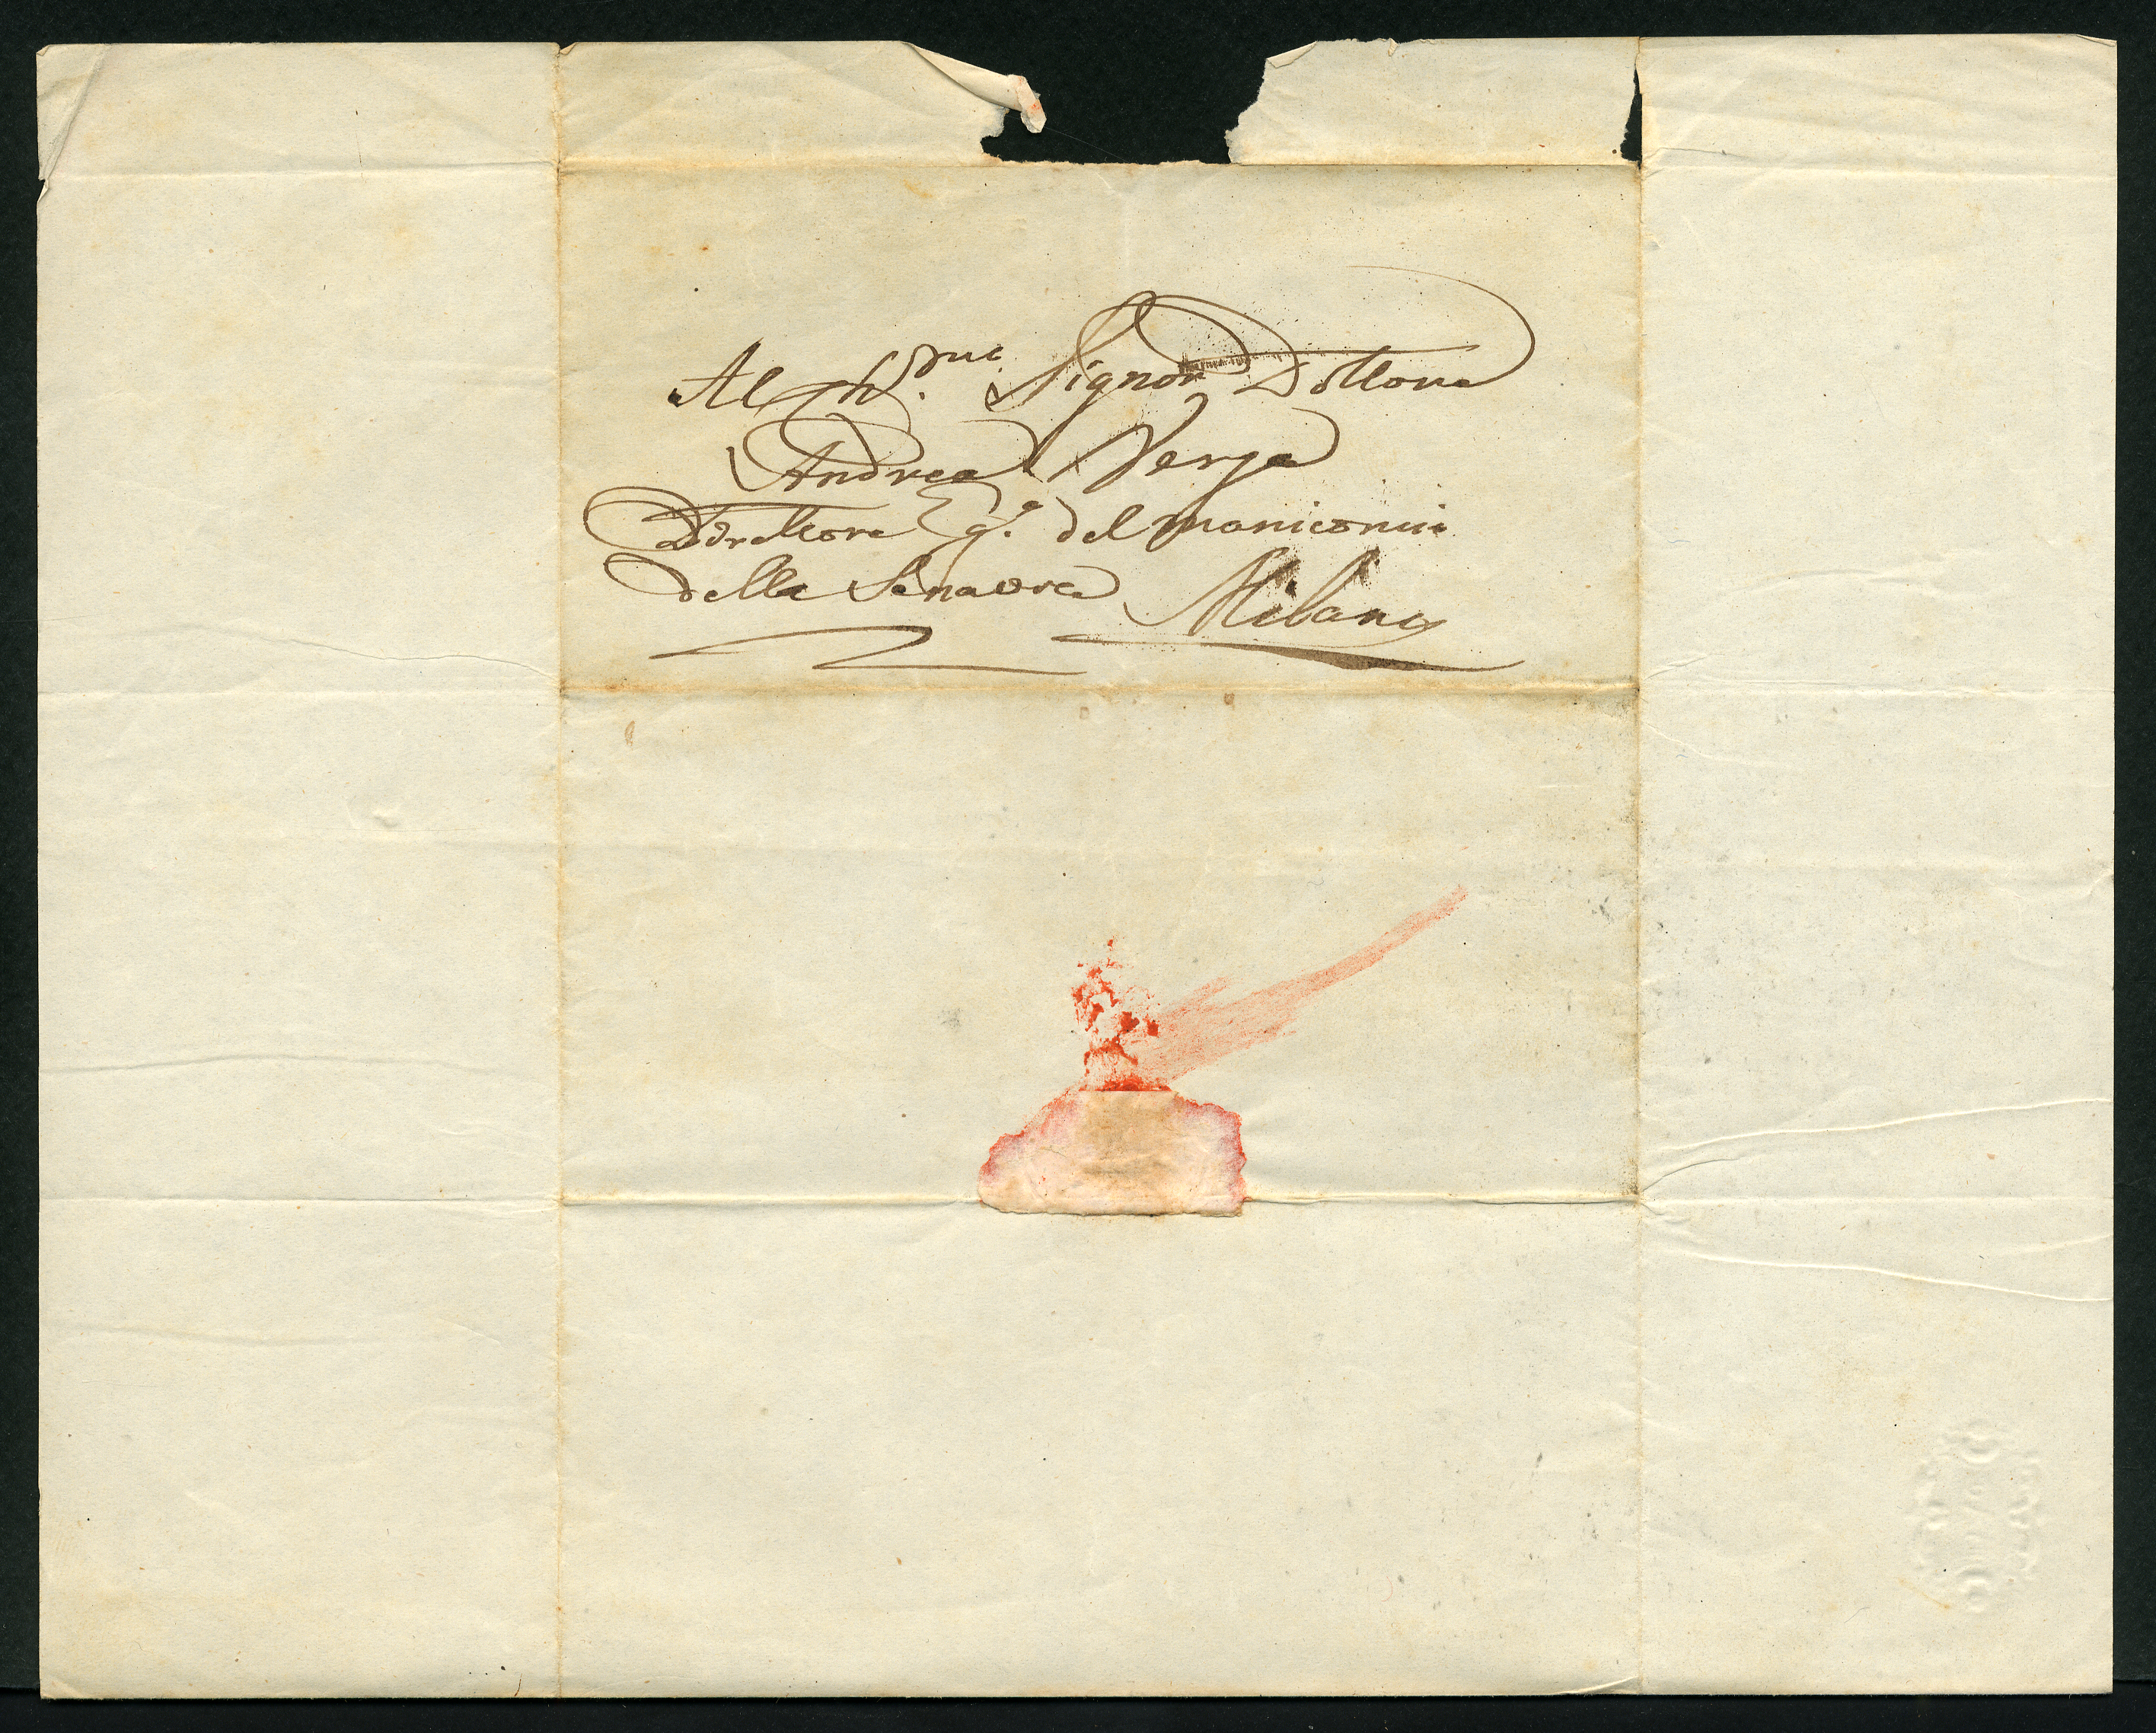 Al Ch.mo Signor Dottore
Andrea Verga
Direttore del manicomio
della Senavra Milano